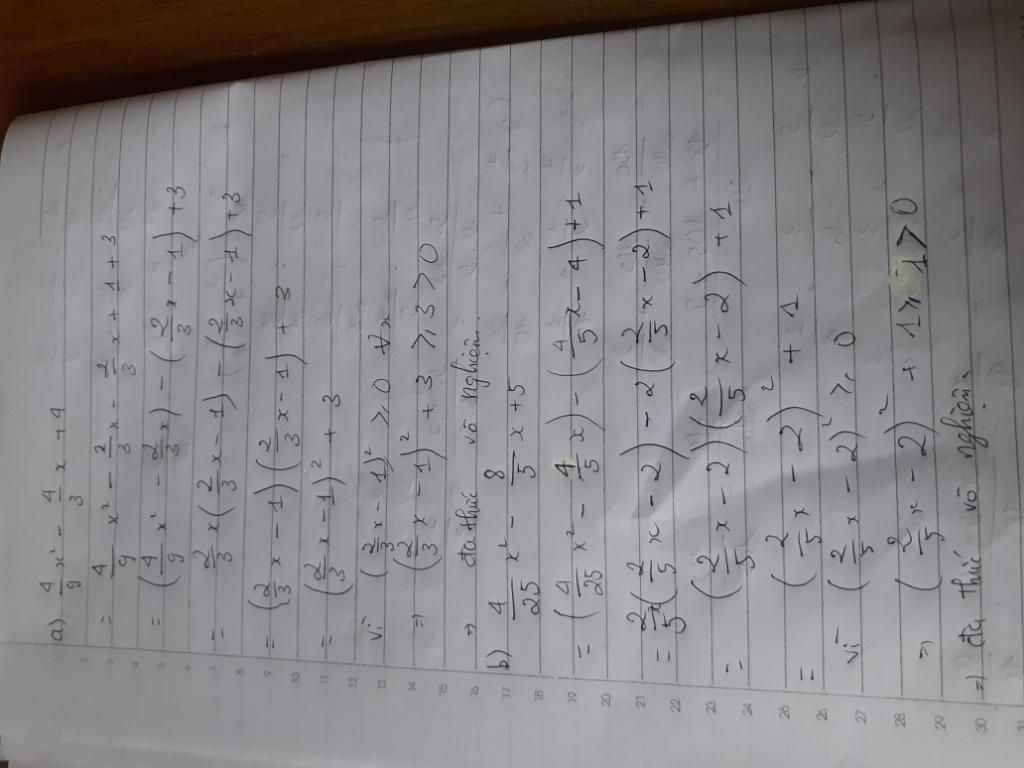 a) 4/9 x² - 4/3 x + 4
= 4/9 x² - 2/3 x - 2/3 x + 1 + 3
= (4/9 x² - 2/3 x) - (2/3 x - 1) + 3
= 2/3 x (2/3 x - 1) - (2/3 x - 1) + 3
= (2/3 x - 1) (2/3 x - 1) + 3
= (2/3 x - 1)² + 3
vì (2/3 x - 1)² ≥ 0 ∀x
⇒ (2/3 x - 1)² + 3 ≥ 3 > 0
⇒ đa thức vô nghiệm.
b) 4/25 x² - 8/5 x + 5
= (4/25 x² - 4/5 x) - (4/5 x - 4) + 1
= 2/5 x (2/5 x - 2) - 2 (2/5 x - 2) + 1
= (2/5 x - 2) (2/5 x - 2) + 1
= (2/5 x - 2)² + 1
vì (2/5 x - 2)² ≥ 0
⇒ (2/5 x - 2)² + 1 ≥ 1 > 0
⇒ đa thức vô nghiệm.